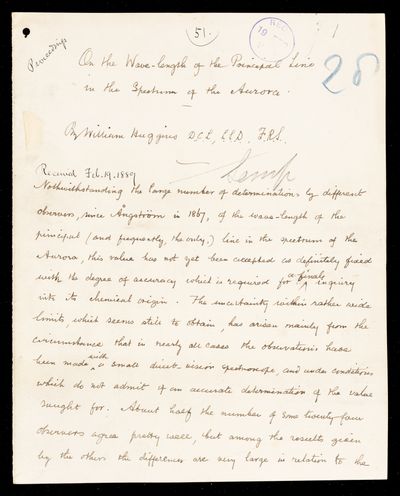 51.
REC
19
Proceedings
28
On the Wave-length of the Principal Line
in the Spectrum of the Aurora.
By William Huggins D.C.L, LL.D, F.R.S.
Received Feb. 19. 1889
Notwithstanding the large number of determinations by different
observers, since Ångström in 1867, of the wave-length of the
principal (and frequently, the only,) line in the spectrum of the
Aurora, this value has not yet been accepted as definitely fixed
with the degree of accuracy which is required for a final inquiry
into its chemical origin. The uncertainty within rather wide
limits, which seems still to obtain, has arisen mainly from the
circumstance that in nearly all cases the observations have
been made with a small direct vision spectroscope, and under conditions
which do not admit of an accurate determination of the value
sought for. About half the number of some twenty-four
observers agree pretty well, but among the results given
by the others the differences are very large in relation to the